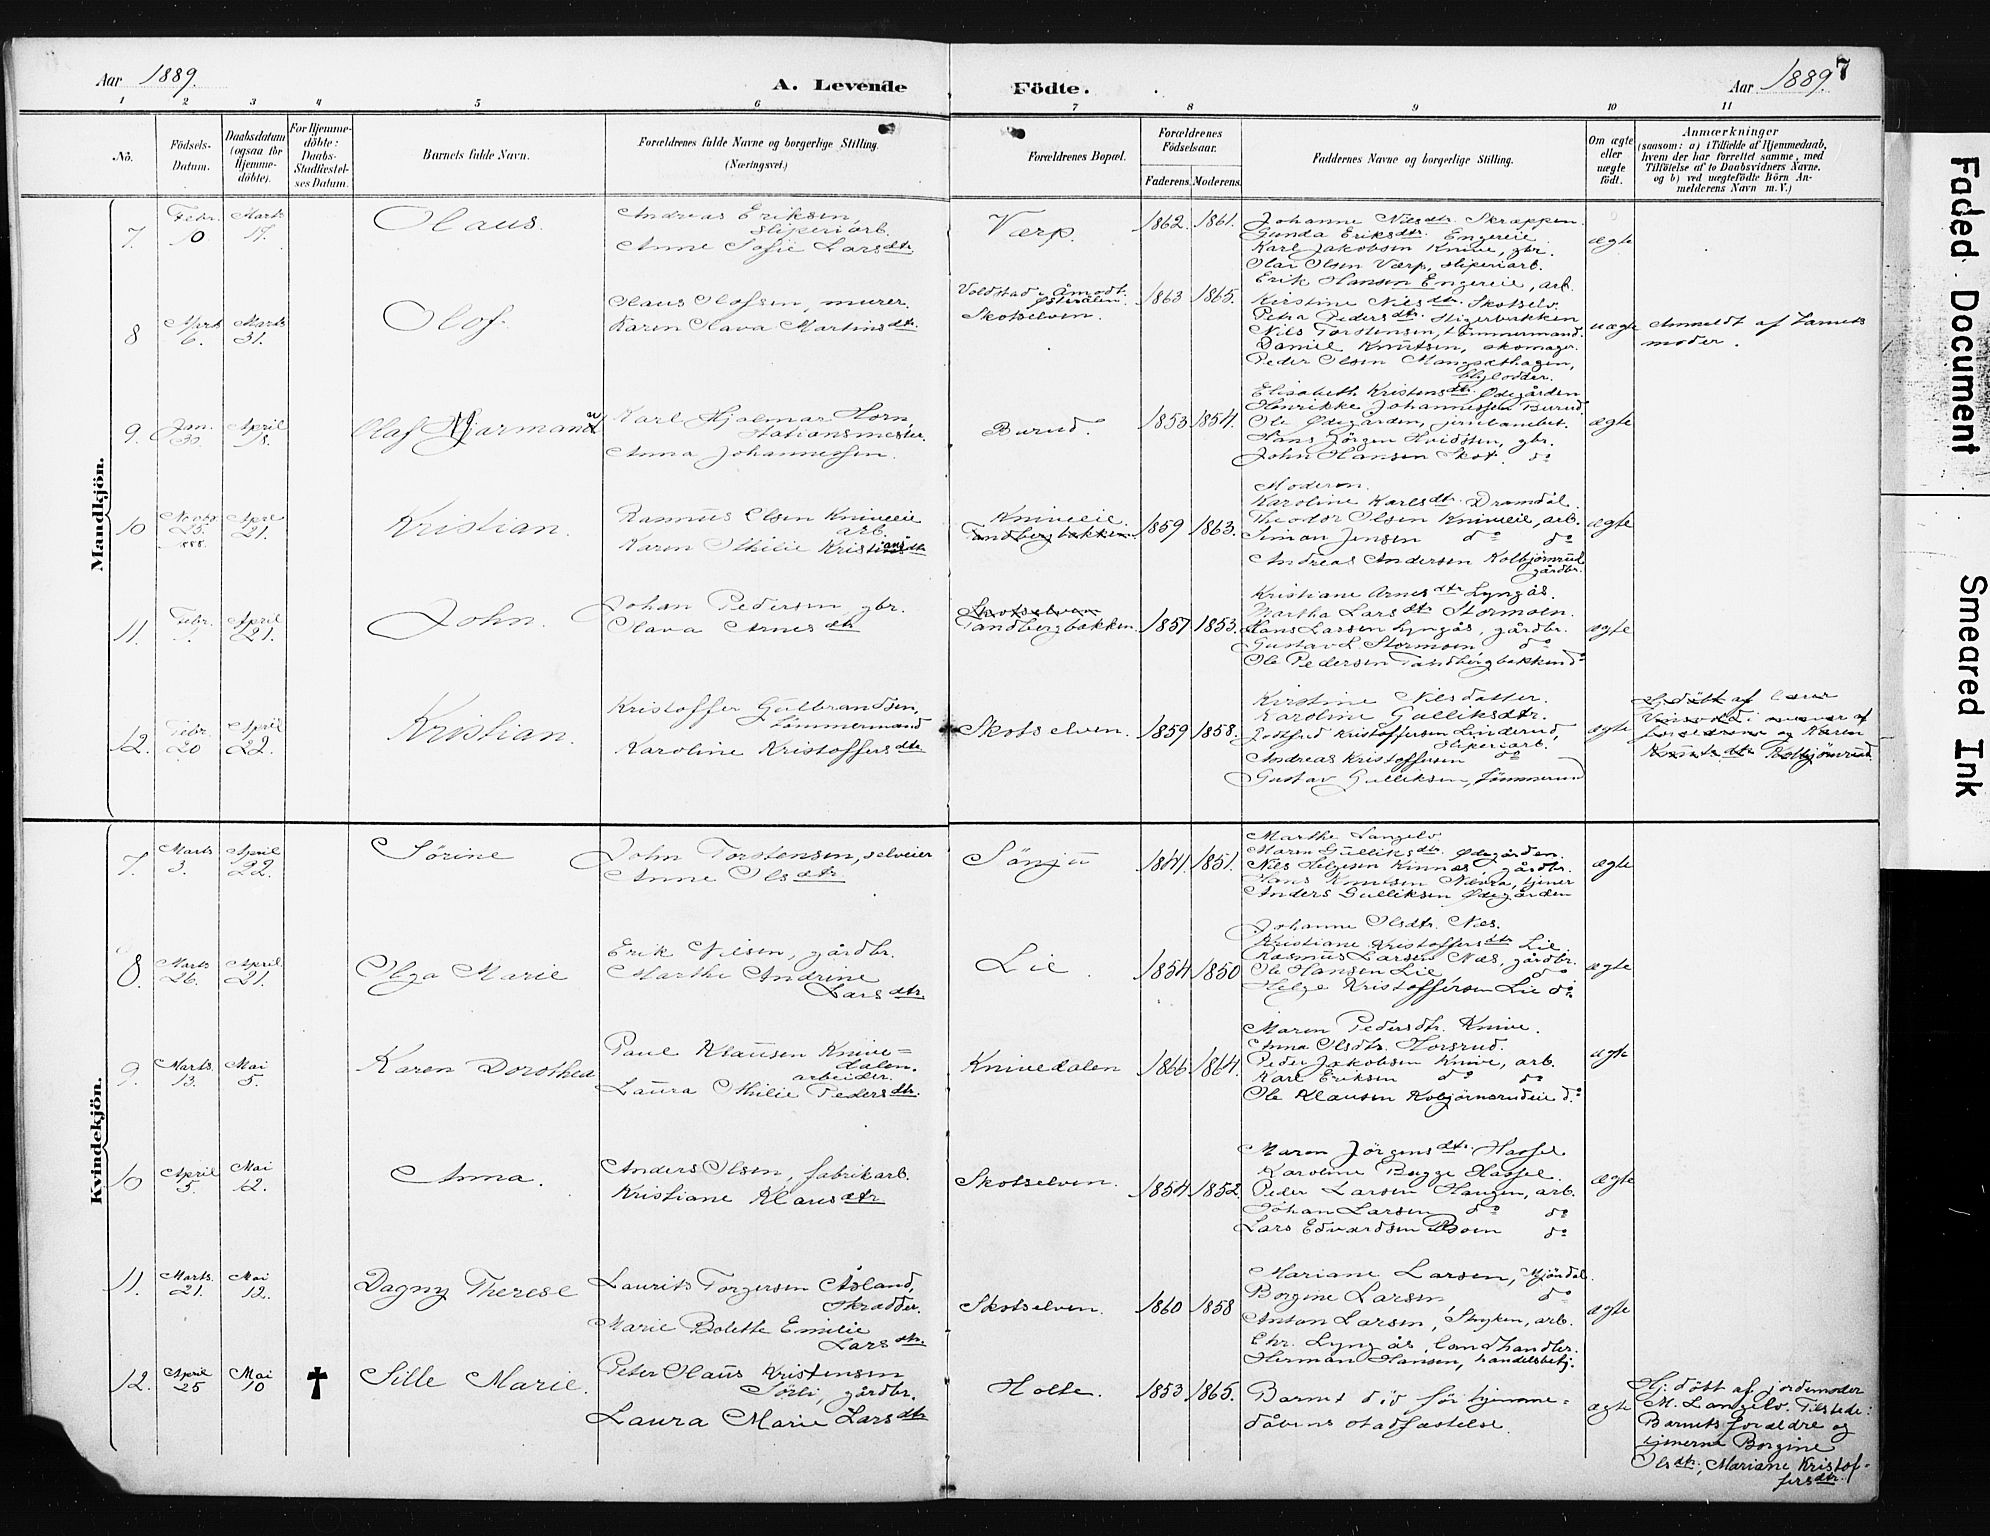 Aar 1889.
A. Levende Födte.
Aar 1889.
7
1 2 3 4 5 6 7 8 9 10 11
No.
Födsels-Datum.
Daabsdatum (ogsaa for Hjemme-döbte).
For Hjemme-döbte: Daabs-Stadfæstel-ses Datum.
Barnets fulde Navn.
Forældrenes fulde Navne og borgerlige Stilling. (Næringsvei.)
Forældrenes Bopæl.
Forældrenes Födselsaar.
Faderens. Moderens.
Faddernes Navne og borgerlige Stilling.
Om ægte eller uægte födt.
Anmærkninger
(saasom: a) i Tilfælde af Hjemmedaab,
hvem der har forrettet samme, med
Tilföielse af to Daabsvidners Navne.
og b) ved uægtefödte Börn An-
melderens Navn m. V.)
Mandkjön.
7. Febr. 10 Marts 17. Olaus. Andreas Eriksen, sliperiarb. Anne Sofie Larsdtr. Værp. 1862. 1861. ægte
Johanne Nilsdtr. Skrappen.
Gunda Eriksdtr. Engereie.
Karl Jakobsen Knive, gbr.
Olai Olsen Værp, sliperiarb.
Erik Hansen Engereie, arb.
8 Marts 6. Marts 31. Olof. Olaus Olofsen, murer. Karen Olava Martinsdtr. Voldstad i Åmodt Østerdalen. Skotselven. 1863 1865. uægte
Kirstine Nilsdtr. Skotselv.
Petra Pedersdtr. Stigerbakken
Nils Torstensen, tømmermand.
Daniel Knutsen, skomager.
Peder Olsen Mangsethagen,
blylodder.
Anmeldt af barnets moder.
9. Jan. 30. April 18. Olaf Hjarmand Karl Hjalmar Horn, stationsmester. Anna Johannessen. Burud. 1853 1854. ægte
Elisabeth Kristensdtr. Ødegården
Henrikke Johannessen Burud.
Ole Ødegården, jernbanebet.
Hans Jörgen Hvidsten, gbr.
John Hansen Skot. do
10 Novbr. 25. 1888. April 21. Kristian. Rasmus Olsen Kniveeie arb. Karen Othilie Kristiansdtr. Kniveeie. Tandbergbakken. 1859 1863. ægte
Moderen.
Karoline Karlsdtr. Dramdal.
Theodor Olsen Kniveeie, arb.
Simon Jensen do do
Andreas Andersen Kolbjørnrud gårdbr.
11. Febr. 1. April 21. John. Johan Pedersen, gbr. Olava Arnesdtr Skotselven Tandbergbakken. 1857 1853. ægte
Kristiane Arnesdtr Lyngås.
Martha Larsdtr Stormoen.
Hans Larsen Lyngås, gårdbr.
Gustav L. Stormoen do
Ole Pedersen Tandbergbakken do
12. Febr. 20 April 22. Kristian. Kristoffer Gulbrandsen, tømmermand Karoline Kristoffersdtr Skotselven. 1859 1858. ægte
Kirstine Nilsdatter.
Karoline Gulliksdtr.
Gottfred Kristoffersen Linderud,
sliperiarb.
Andreas Kristoffersen do
Gustav Gulliksen, Tömmerud
Hj. döbt af
forældrene og Karen
Knutsdtr Kolbjörnrud.
Kvindekjön.
7. Marts 3. April 22. Sörine John Torstensen, selveier Anne Olsdtr. Sönju 1841. 1851. ægte
Marthe Langelv
Maren Gulliksdtr. Ødegården.
Nils Helgesen Kinnås, gårdbr.
Hans Knutsen Nævra, tjener
Anders Gulliksen Ødegården
8. Marts 26. April 21. Olga Marie Erik Nilsen, gårdbr. Marthe Andrine Larsdtr. Lie. 1854 1850 ægte
Johanne Olsdtr. Næs.
Kristiane Kristoffersdtr Lie.
Rasmus Larsen Næs, gårdbr.
Ole Hansen Lie, do
Helge Kristoffersen Lie do.
9. Marts 13. Mai 5. Karen Dorothea Paul Klausen Knive=dalen. arbeider. Laura Othilie Pedersdtr. Knivedalen 1866 1864. ægte
Maren Pedersdtr. Knive.
Anna Olsdtr. Horsrud.
Peder Jakobsen Knive, arb.
Karl Eriksen do do
Ole Klausen Kolbjørnsrudeie do
10 April 5. Mai 12. Anna. Anders Olsen, fabrikarb. Kristiane Klausdtr Skotselven. 1854 1852 ægte
Maren Jörgensdtr. Hassel
Karoline Bugge Hassel.
Peder Larsen Haugen, arb.
Johan Larsen do do
Lars Edvardsen Moen do
11. Marts 21. Mai 12. Dagny Therese Laurits Torgersen Åsland, skrædder. Marie Bolette Emilie Larsdtr. Skotselven. 1860 1858 ægte
Mariane Larsen, Mjöndal.
Borgine Larsen do
Anton Larsen, Stryken, arb.
Chr. Lyngås, landhandler.
Herman Hansen, handelsbetj.
12. April 25 Mai 10 ✝ Sille Marie. Peter Olaus Kristensen Sörli, gårdbr. Laura Marie Larsdtr Holte. 1853 1865. ægte
Barnet död för hjemme=
dåbens stadfæstelse.
Hj. döbt af jordemoder
M. Langelv. Tilstede:
Barnets forældre og
tjenerne Borgine
Olsdtr, Mariane Kristof-
fersdtr.
Faded Document
Smeared Ink